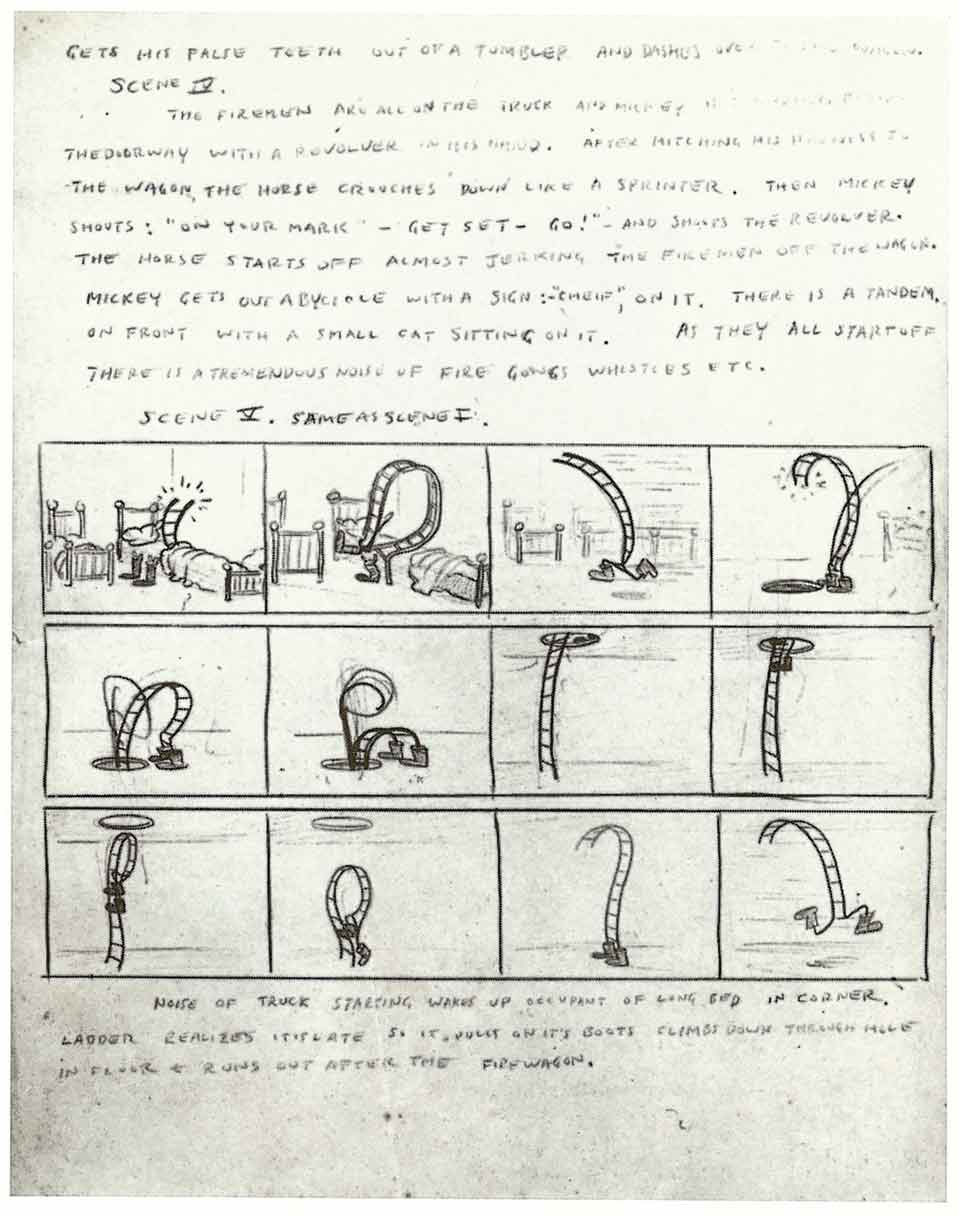 GETS HIS FALSE TEETH OUT OF A TUMBLER AND DASHES OVER TO THE WAGON.
SCENE IV.
THE FIREMEN ARE ALL ON THE TRUCK AND MICKEY
THE DOORWAY WITH A REVOLVER IN HIS HAND. AFTER HITCHING HIS HARNESS TO
THE WAGON, THE HORSE CROUCHES DOWN LIKE A SPRINTER. THEN MICKEY
SHOUTS: "ON YOUR MARK" - GET SET - GO!" - AND SHOOTS THE REVOLVER.
THE HORSE STARTS OFF ALMOST JERKING THE FIREMEN OFF THE WAGON.
MICKEY GETS OUT A BYCICLE WITH A SIGN: "CHEIF", ON IT. THERE IS A TANDEM,
ON FRONT WITH A SMALL CAT SITTING ON IT. AS THEY ALL START OFF
THERE IS A TREMENDOUS NOISE OF FIRE GONGS WHISTLES ETC.
SCENE V. SAME AS SCENE I.
NOISE OF TRUCK STARTING WAKES UP OCCUPANT OF LONG BED IN CORNER.
LADDER REALIZES IT IS LATE SO IT PULLS ON IT'S BOOTS CLIMBS DOWN THROUGH HOLE
IN FLOOR & RUNS OUT AFTER THE FIREWAGON.